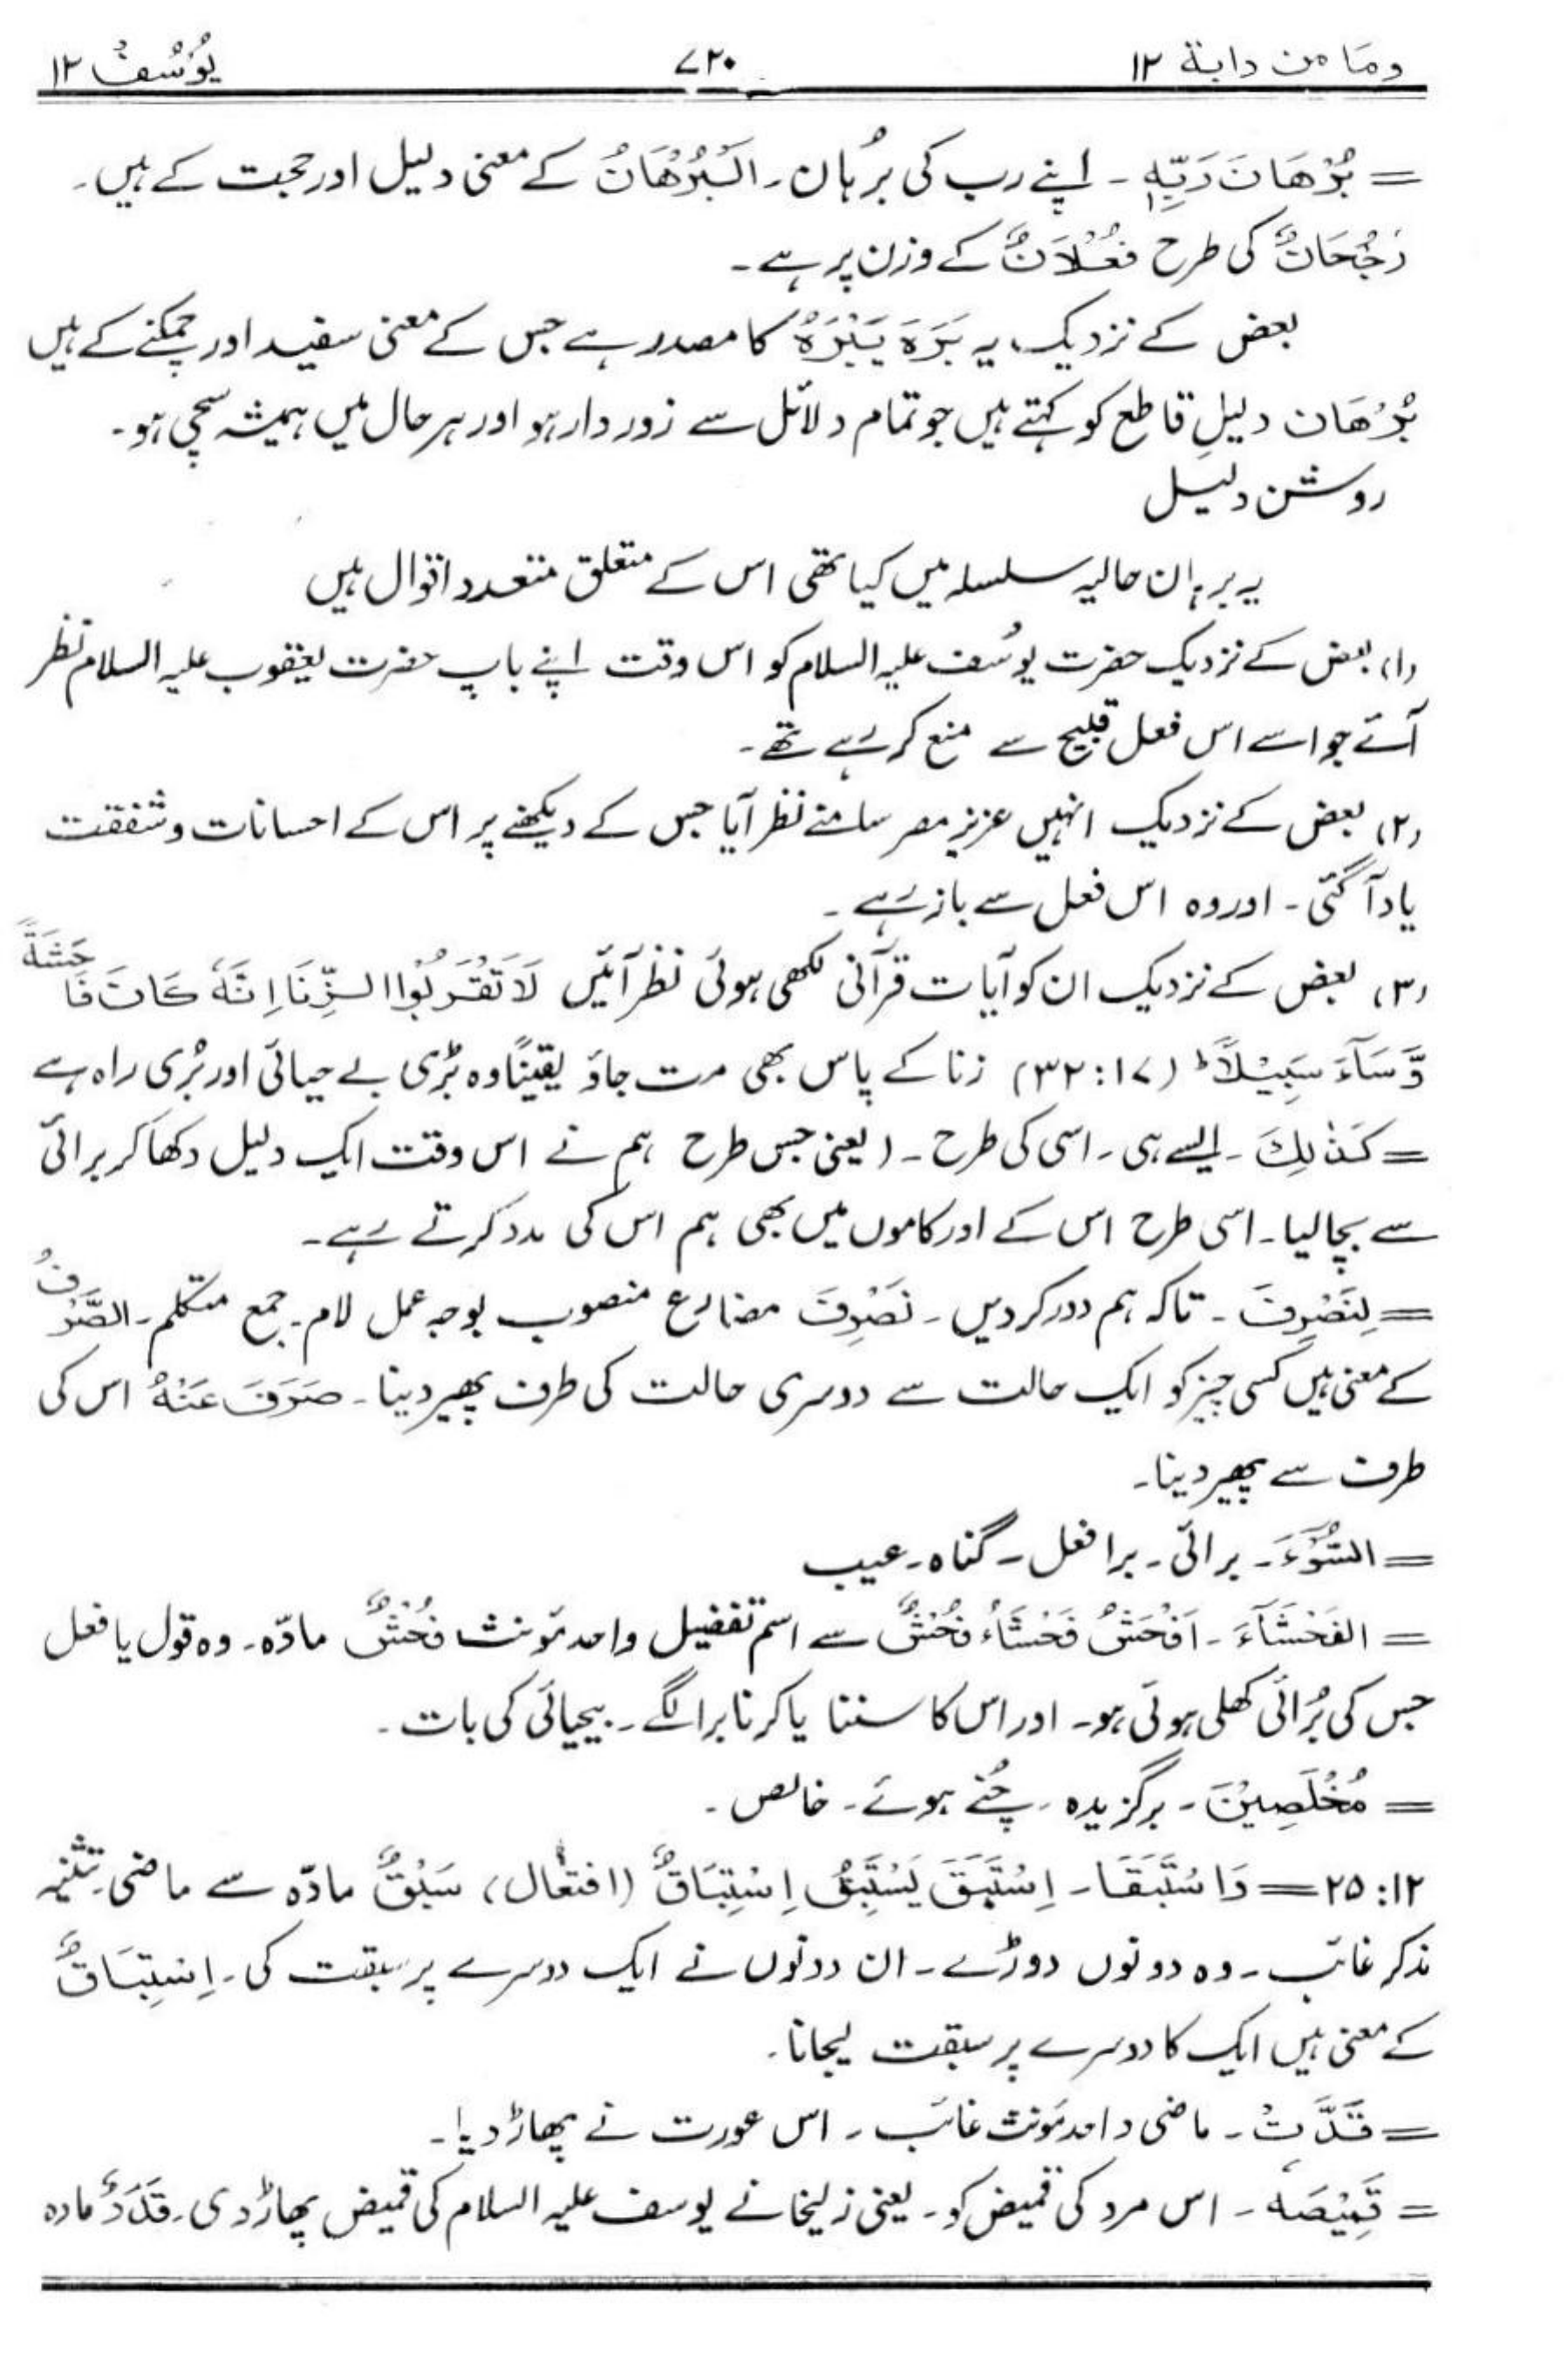 ومَا من دابة ۱۲ ۷۲۰ یُوْسُفُ ۱۲
= بُرْهَانَ رَبِّهٖ ۔ اپنے رب کی بُرہان ۔ اَلْبُرْهَانُ کے معنی دلیل اور حجت کے ہیں ۔
رُجْحَانٌ کی طرح فُعْلَانٌ کے وزن پر ہے ۔
بعض کے نزدیک یہ بَرَهَ یَبْرَهُ کا مصدر ہے جس کے معنی سفید اور چمکنے کے ہیں
بُرْهَان دلیلِ قاطع کو کہتے ہیں جو تمام دلائل سے زور دار ہو اور ہر حال میں ہمیشہ سچی ہو ۔
روشن دلیل
یہ برہان حالیہ سلسلہ میں کیا تھی اس کے متعلق متعدد اقوال ہیں
(۱) بعض کے نزدیک حضرت یوسُف علیہ السلام کو اس وقت اپنے باپ حضرت یعقوب علیہ السلام نظر
آئے جو اسے اس فعل قبیح سے منع کر رہے تھے ۔
(۲) بعض کے نزدیک انہیں عزیز مصر سامنے نظر آیا جس کے دیکھنے پر اس کے احسانات و شفقت
یاد آگئی ۔ اور وہ اس فعل سے باز رہے ۔
(۳) بعض کے نزدیک ان کو آیات قرآنی لکھی ہوئی نظر آئیں لَا تَقْرَبُوا الزِّنَا اِنَّهٗ كَانَ فَاحِشَةً
وَّسَآءَ سَبِيْلًا ؕ (۳۲:۱۷) زنا کے پاس بھی مت جاؤ یقیناً وہ بڑی بے حیائی اور بُری راہ ہے
= كَذٰلِكَ ۔ ایسے ہی ۔ اسی کی طرح ۔ (یعنی جس طرح ہم نے اس وقت ایک دلیل دکھا کر برائی
سے بچا لیا ۔ اسی طرح اس کے اور کاموں میں بھی ہم اس کی مدد کرتے رہے ۔
= لِنَصْرِفَ ۔ تاکہ ہم دور کر دیں ۔ نَصْرِفَ مضارع منصوب بوجہ عمل لام ۔ جمع متکلم ۔ الصَّرْفُ
کے معنی ہیں کسی چیز کو ایک حالت سے دوسری حالت کی طرف پھیر دینا ۔ صَرَفَ عَنْهُ اس کی
طرف سے پھیر دینا ۔
= السُّوْٓءَ ۔ برائی ۔ برا فعل ۔ گناہ ۔ عیب
= الفَحْشَآءَ ۔ اَفْحَشُ فَحْشَاءُ فُحْشٌ سے اسم تفضیل واحد مؤنث فُحْشٌ مادّہ ۔ وہ قول یا فعل
جس کی بُرائی کھلی ہوئی ہو ۔ اور اس کا سننا یا کرنا برا لگے ۔ بیحیائی کی بات ۔
= مُخْلَصِيْنَ ۔ برگزیدہ ۔ چُنے ہوئے ۔ خالص ۔
۲۵:۱۲ = وَاسْتَبَقَا ۔ اِسْتَبَقَ يَسْتَبِقُ اِسْتِبَاقٌ (افتعال) سَبْقٌ مادّہ سے ماضی تثنیہ
مذکر غائب ۔ وہ دونوں دوڑے ۔ ان دونوں نے ایک دوسرے پر سبقت کی ۔ اِسْتِبَاقٌ
کے معنی ہیں ایک کا دوسرے پر سبقت لیجانا ۔
= قَدَّتْ ۔ ماضی واحد مؤنث غائب ۔ اس عورت نے پھاڑ دیا ۔
= قَمِيْصَهٗ ۔ اس مرد کی قمیض کو ۔ یعنی زلیخا نے یوسف علیہ السلام کی قمیض پھاڑ دی ۔ قَدَدٌ مادہ